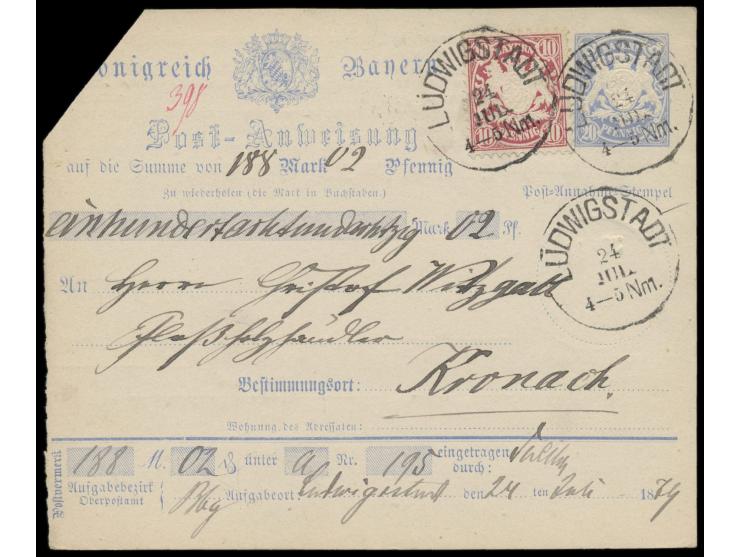 Königreich Bayern
398
10 10
PFENNIG
10 10
20 20
PFENNIG
LUDWIGSTADT
24
JUL
4—5 Nm.
LUDWIGSTADT
24
JUL
4—5 Nm.
Post-Anweisung
auf die Summe von 188 Mark 02 Pfennig
Zu wiederholen (die Mark in Buchstaben.) Post-Annahme-Stempel
einhundertachtundachtzig Mark 02 Pf.
LUDWIGSTADT
24
JUL
4—5 Nm.
An Herrn Christof Witzgall
Floßholzhändler
Bestimmungsort: Kronach.
Wohnung des Adressaten:
Postvermerk
188 M. 02 ₰ unter a Nr. 195 eingetragen durch:
Aufgabebezirk Oberpostamt Bbg Aufgabeort Ludwigstadt den 24 ten Juli 1879